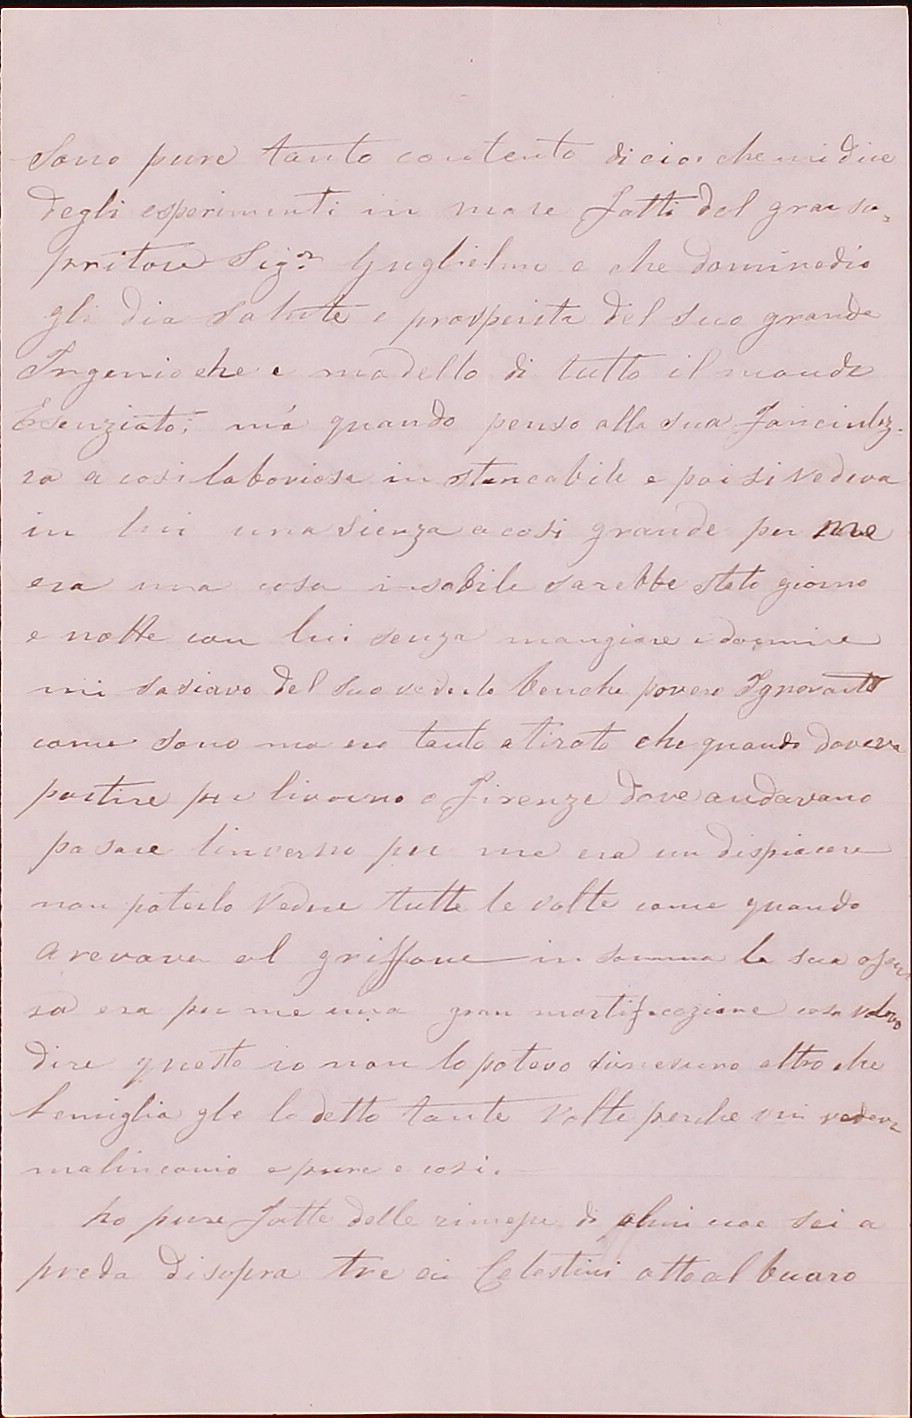 Sono pure tanto contento di cio che mi dice
degli esperimenti in mare fatti del gran sco=
pritore Sig.r Guglielmo e che dominedio
gli dia salute e prosperita del suo grande
Ingenio che e modello di tutto il mondo
Esenziato; má quando penso alla sua Fanciulez-
za a cosi laboriosa in stancabile e poi si vedeva
in lui una sienza a cosi grande per me
era una cosa insabile sarebbe stato giorno
e notte con lui senza mangiare e dormire
mi saziavo del suo vederlo benche povero Ignorante
come sono ma ero tanto atirato che quando doveva
partire per livorno o Firenze dove andavano
pasare linverno per me era un dispiacere
non poterlo vedere tutte le volte come quando
arevava al griffone in somma la sua asen
za era per me una gran mortificazione cosa volevo
dire questo io non lo potevo nesuno altro che
femiglia gle lo detto tante volte perche mi vedeva
malinconio e pure e cosi.
ho pure fatte delle rimese di sei a
preda disopra tre ai Celestini otto al buaro